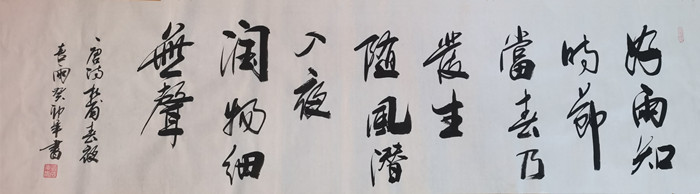 好雨知
時節
當春乃
發生
随風潜
入夜
润物细
無聲
唐诗杜甫春夜
喜雨癸卯年書